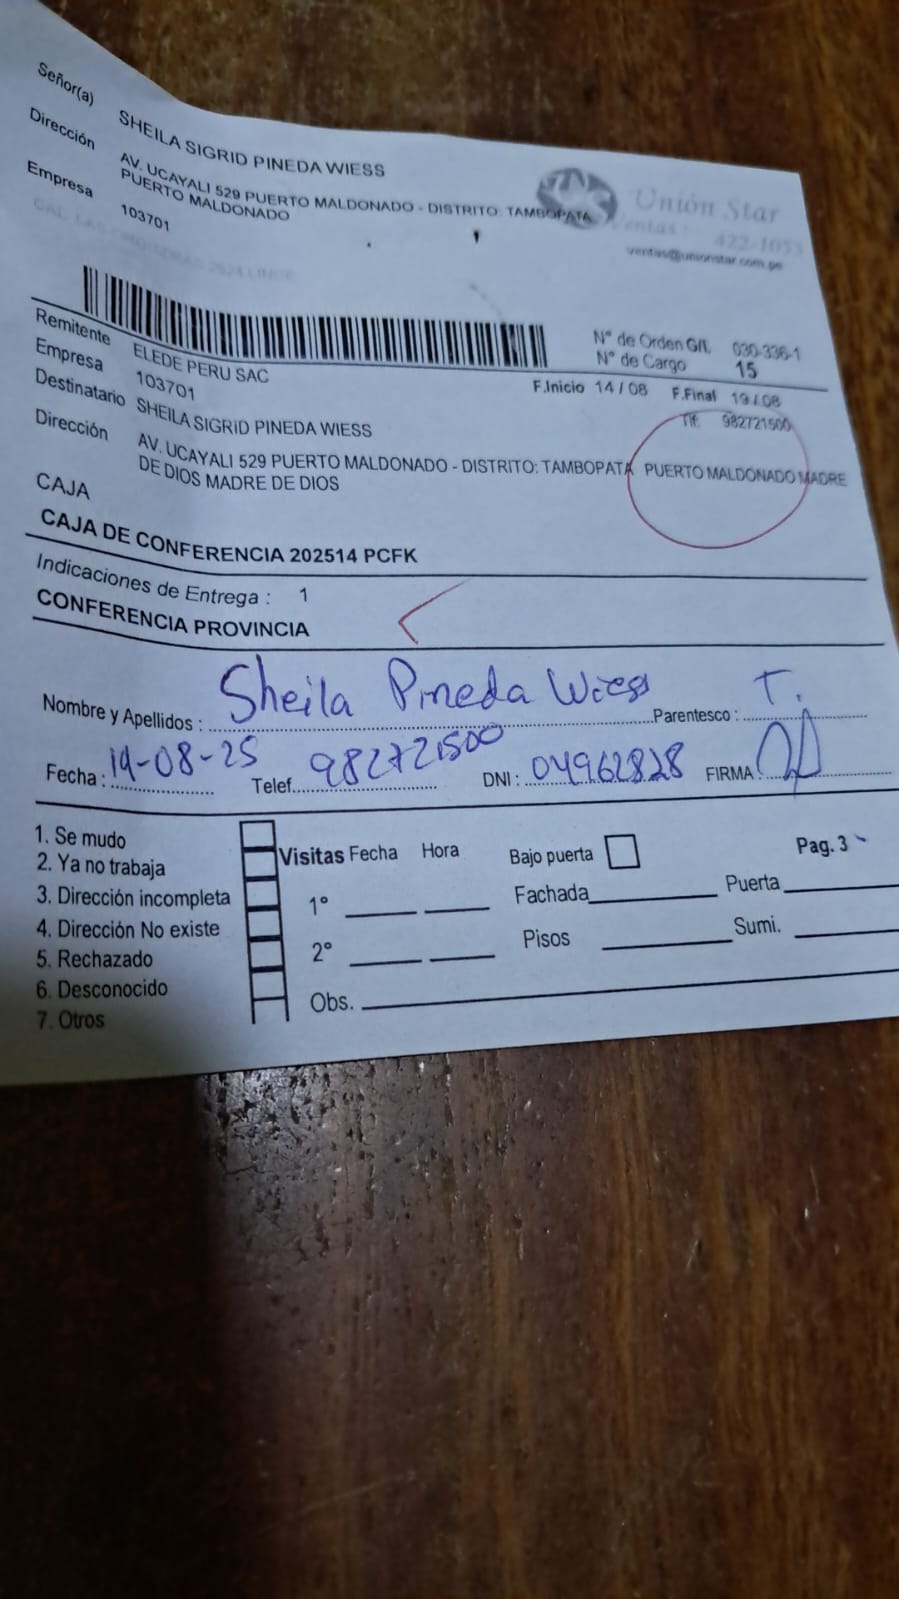 Señor(a) SHEILA SIGRID PINEDA WIESS
Dirección AV. UCAYALI 529 PUERTO MALDONADO - DISTRITO: TAMBOPATA
PUERTO MALDONADO
Empresa 103701
Unión Star
Ventas : 422-1055
ventas@unionstar.com.pe
Remitente ELEDE PERU SAC
Empresa 103701
N° de Orden G/L 030-336-1
N° de Cargo 15
F.Inicio 14 / 08 F.Final 19 / 08
Destinatario SHEILA SIGRID PINEDA WIESS
Tlf: 982721500
Dirección AV. UCAYALI 529 PUERTO MALDONADO - DISTRITO: TAMBOPATA PUERTO MALDONADO MADRE
DE DIOS MADRE DE DIOS
CAJA
CAJA DE CONFERENCIA 202514 PCFK
Indicaciones de Entrega : 1
CONFERENCIA PROVINCIA
Nombre y Apellidos : Sheila Pineda Wiess Parentesco : T.
Fecha : 19-08-25 Telef. 982721500 DNI : 04962828 FIRMA
1. Se mudo
2. Ya no trabaja
3. Dirección incompleta
4. Dirección No existe
5. Rechazado
6. Desconocido
7. Otros
Visitas Fecha Hora
1°
2°
Obs.
Bajo puerta
Pag. 3
Fachada Puerta
Pisos Sumi.